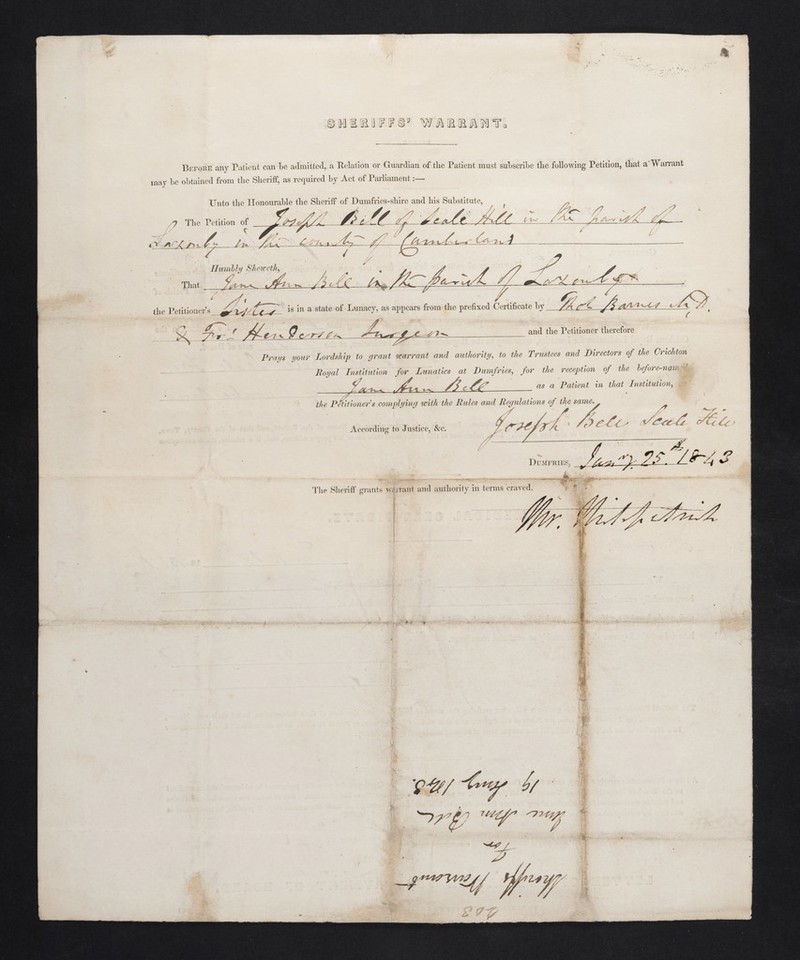 SHERIFFS' WARRANT.
BEFORE any Patient can be admitted, a Relation or Guardian of the Patient must subscribe the following Petition, that a Warrant
may be obtained from the Sheriff, as required by Act of Parliament :—
Unto the Honourable the Sheriff of Dumfries-shire and his Substitute,
The Petition of Joseph Bell of Scale Hill in the parish of
Lazonby in the county of Cumberland
Humbly Sheweth,
That Jane Ann Bell in the parish of Lazonby
the Petitioner's Sister is in a state of Lunacy, as appears from the prefixed Certificate by Thos Barnes M.D.
& Frs Henderson Surgeon and the Petitioner therefore
Prays your Lordship to grant warrant and authority, to the Trustees and Directors of the Crichton
Royal Institution for Lunatics at Dumfries, for the reception of the before-named
Jane Ann Bell as a Patient in that Institution,
the Petitioner's complying with the Rules and Regulations of the same.
According to Justice, &c. Joseph Bell Scale Hill
DUMFRIES, Jany 25th 1843
The Sheriff grants warrant and authority in terms craved.
Kirkpatrick
203
Sheriffs Warrant
For
Jane Ann Bell
19 Jany 1843.